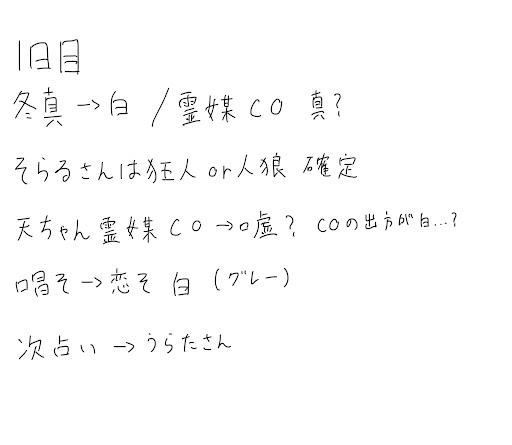 1日目
冬真→白 / 霊媒CO 真?
そらるさんは狂人or人狼 確定
天ちゃん霊媒CO→嘘? COの出方が白...?
唱そ→恋そ 白 (グレー)
次占い→うらたさん